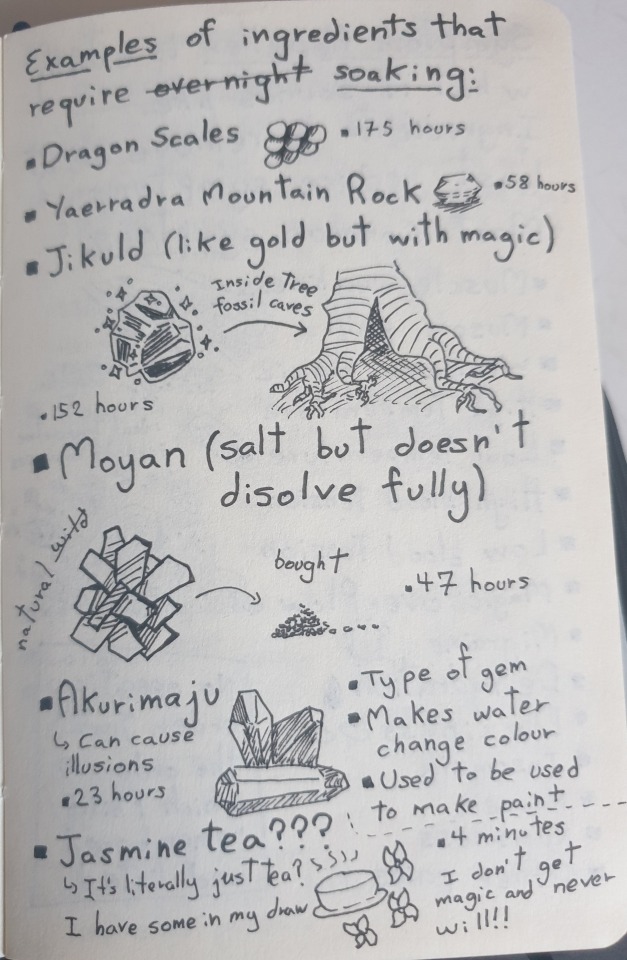 Examples of ingredients that
require overnight soaking:
▪ Dragon Scales
• 175 hours
▪ Yaerradra Mountain Rock
• 58 hours
▪ Jikuld (like gold but with magic)
Inside Tree
fossil caves
• 152 hours
▪ Moyan (salt but doesn't
disolve fully)
natural wild
bought
• 47 hours
▪ Akurimaju
↳ Can cause
illusions
▪ 23 hours
▪ Type of gem
▪ Makes water
change colour
▪ Used to be used
to make paint
▪ Jasmine tea???
↳ It's literally just tea?
I have some in my draw
• 4 minutes
I don't get
magic and never
will!!